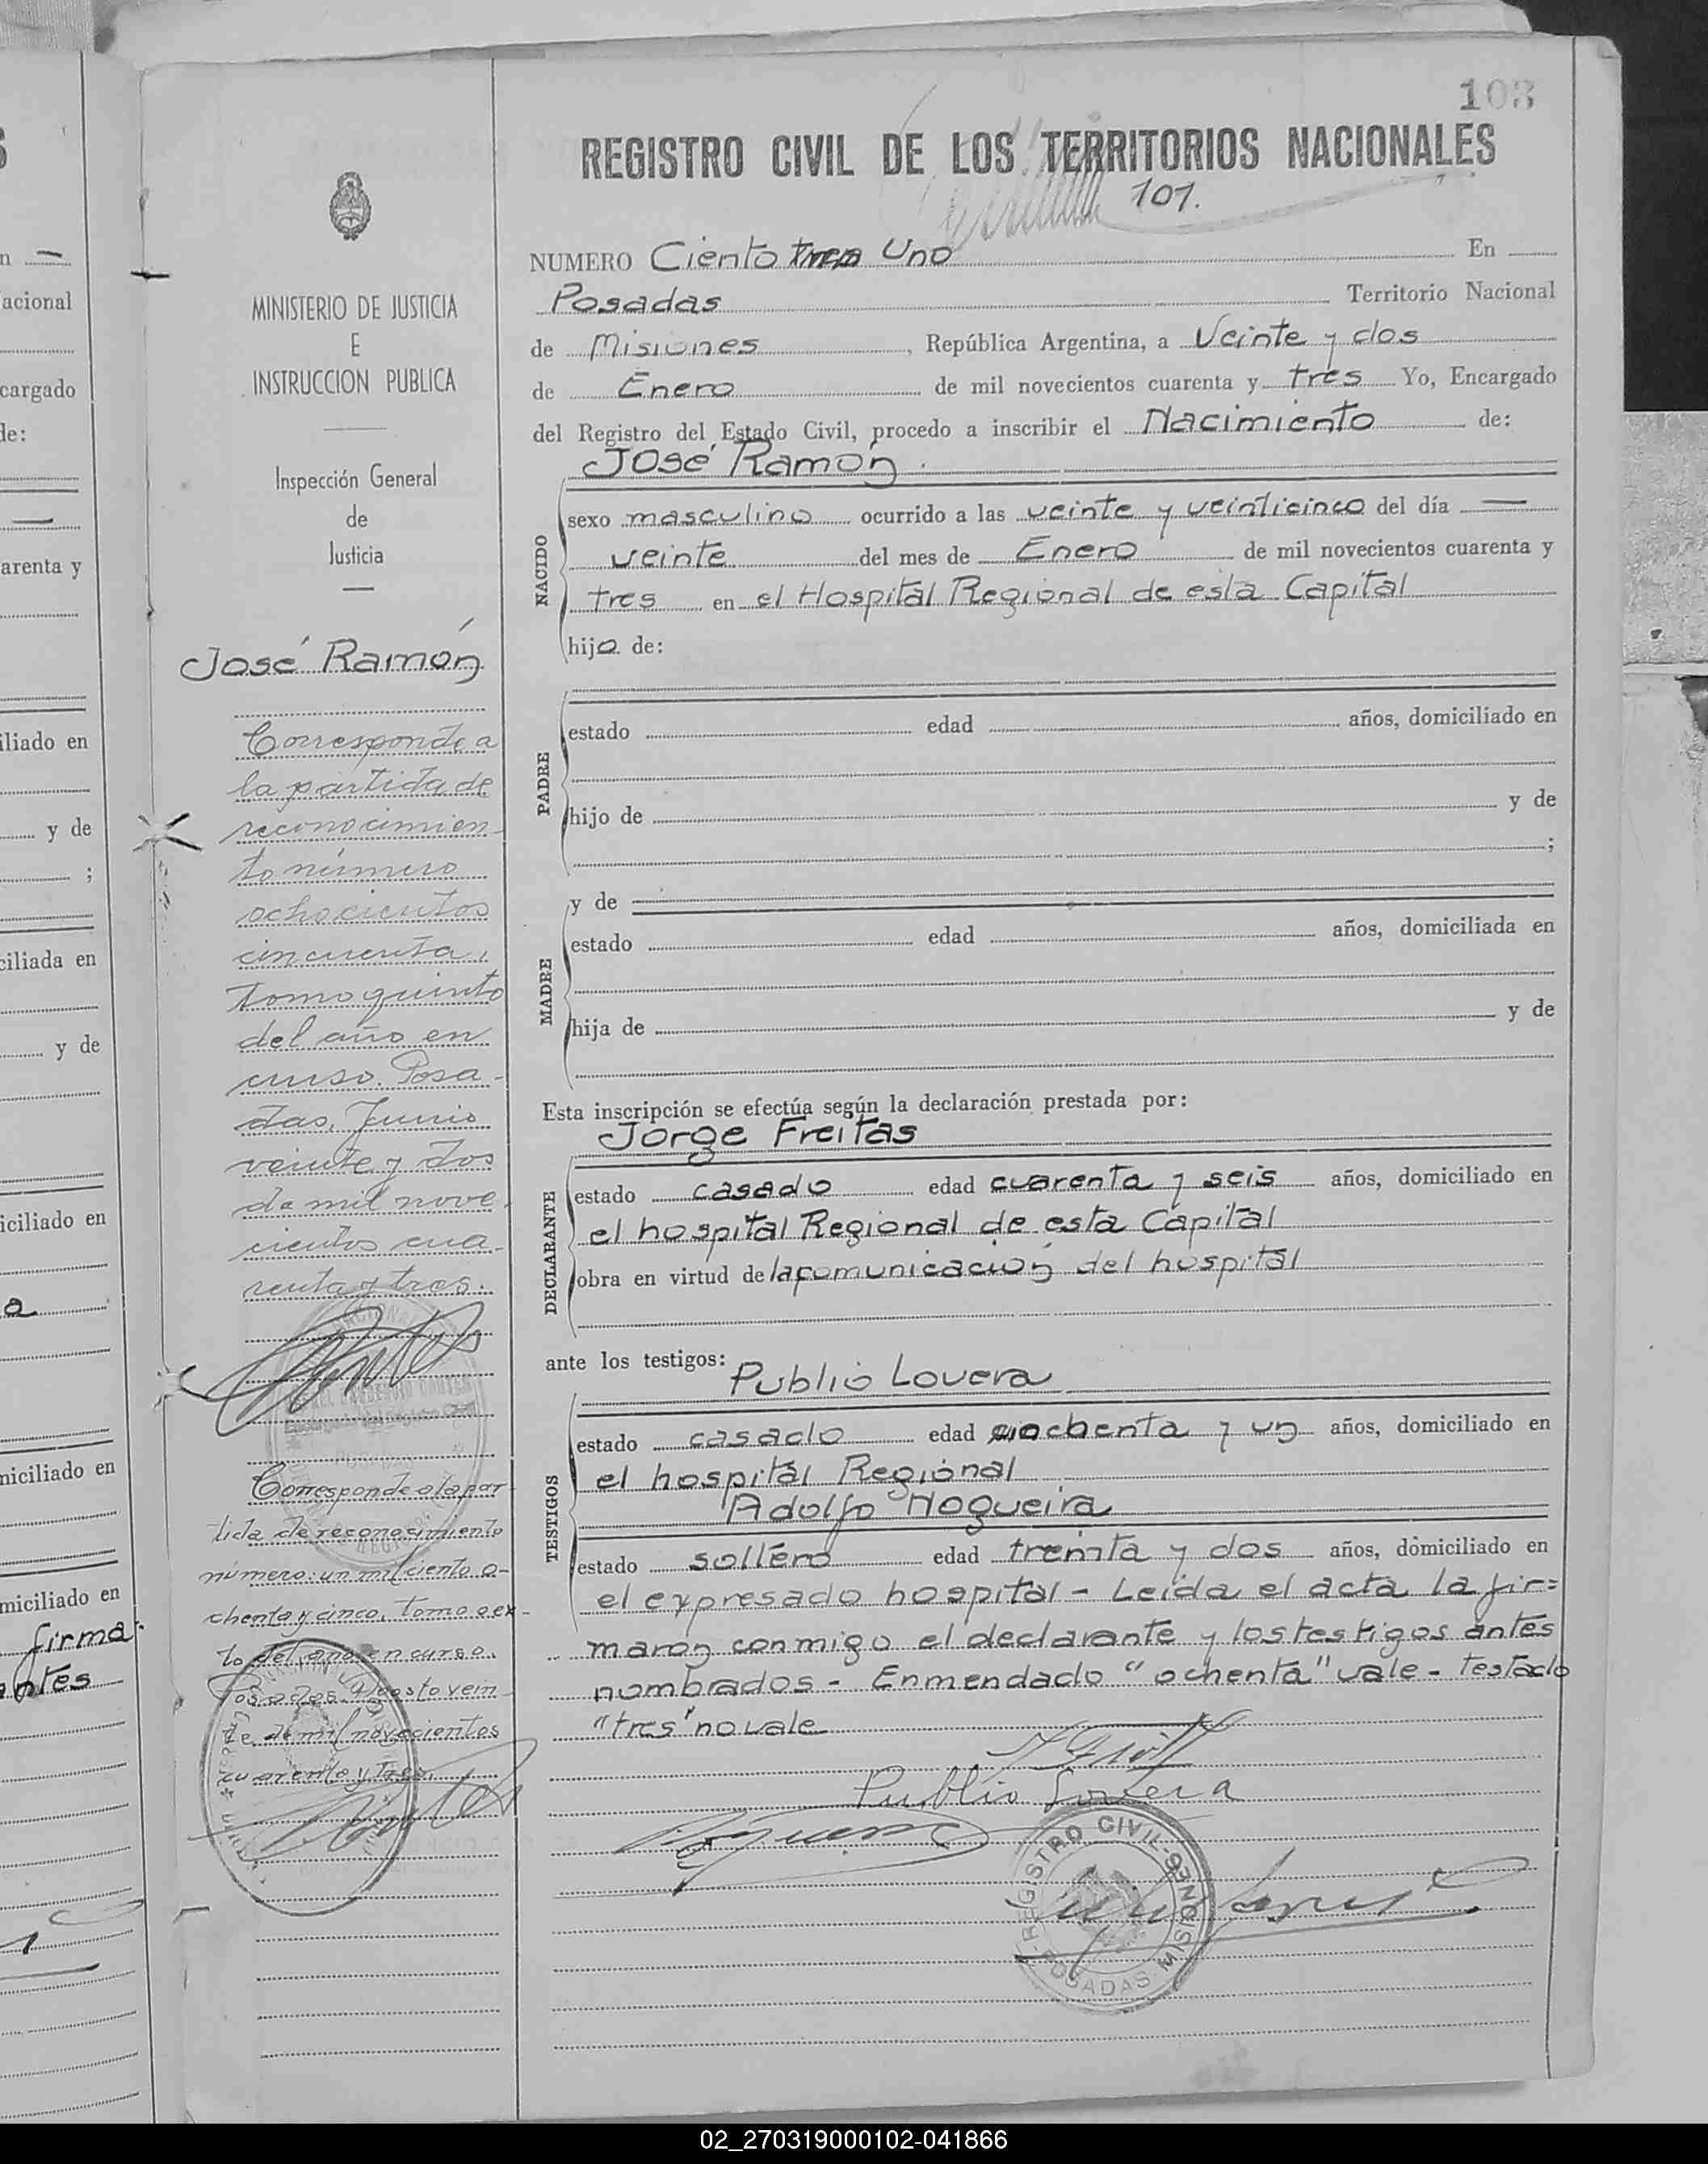 103
REGISTRO CIVIL DE LOS TERRITORIOS NACIONALES
101.
NUMERO Ciento tres Uno En
Posadas Territorio Nacional
de Misiones, República Argentina, a Veinte y dos
de Enero de mil novecientos cuarenta y tres Yo, Encargado
del Registro del Estado Civil, procedo a inscribir el Nacimiento de:
José Ramón.
NACIDO
sexo masculino ocurrido a las veinte y veinticinco del día —
veinte del mes de Enero de mil novecientos cuarenta y
tres en el Hospital Regional de esta Capital
hijo de:
PADRE
estado edad años, domiciliado en
hijo de y de
;
MADRE
y de
estado edad años, domiciliada en
hija de y de
Esta inscripción se efectúa según la declaración prestada por:
Jorge Freitas
DECLARANTE
estado casado edad cuarenta y seis años, domiciliado en
el hospital Regional de esta Capital
obra en virtud de la comunicación del hospital
ante los testigos:
Publio Lovera
TESTIGOS
estado casado edad ochenta y un años, domiciliado en
el hospital Regional
Adolfo Nogueira
estado soltero edad treinta y dos años, domiciliado en
el expresado hospital - Leida el acta la fir=
maron conmigo el declarante y los testigos antes
nombrados - Enmendado "ochenta" vale - Testado
"tres" no vale
Publio Lovera
REGISTRO CIVIL
POSADAS MISIONES
MINISTERIO DE JUSTICIA
E
INSTRUCCION PUBLICA
Inspección General
de
Justicia
José Ramón
Corresponde a
la partida de
reconocimien-
to número
ochocientos
cincuenta,
tomo quinto
del año en
curso. Posa-
das, Junio
veinte y dos
de mil nove-
cientos cua-
renta y tres.
Corresponde a la par-
tida de reconocimiento
número: un mil ciento o-
chenta y cinco, Tomo sex-
to del año en curso.
Posadas, Agosto vein-
te de mil novecientos
cuarenta y tres.
acional
cargado
de:
arenta y
iliado en
y de
;
ciliada en
y de
iciliado en
a
niciliado en
miciliado en
firma
antes
02_270319000102-041866